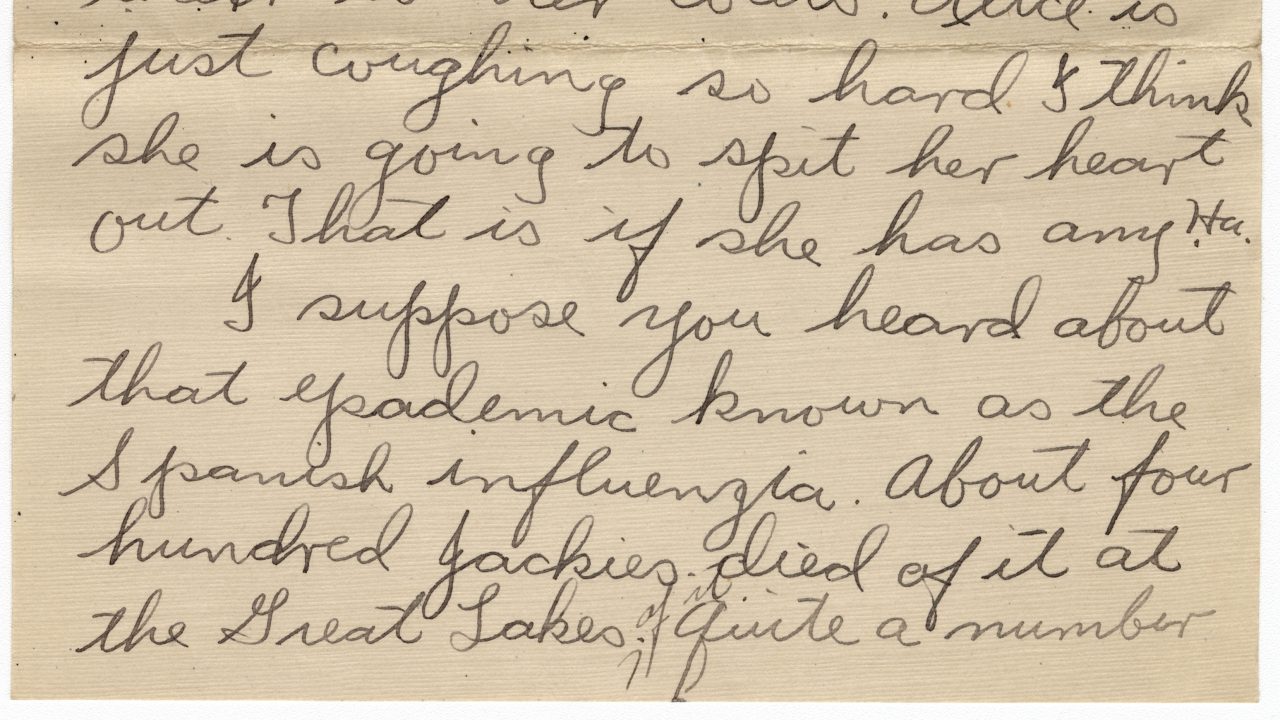 her is
just coughing so hard I think
she is going to spit her heart
out. That is if she has any Ha.
I suppose you heard about
that epademic known as the
Spanish influenzia. About four
hundred Jackies died of it at
the Great Lakes. of it Quite a number